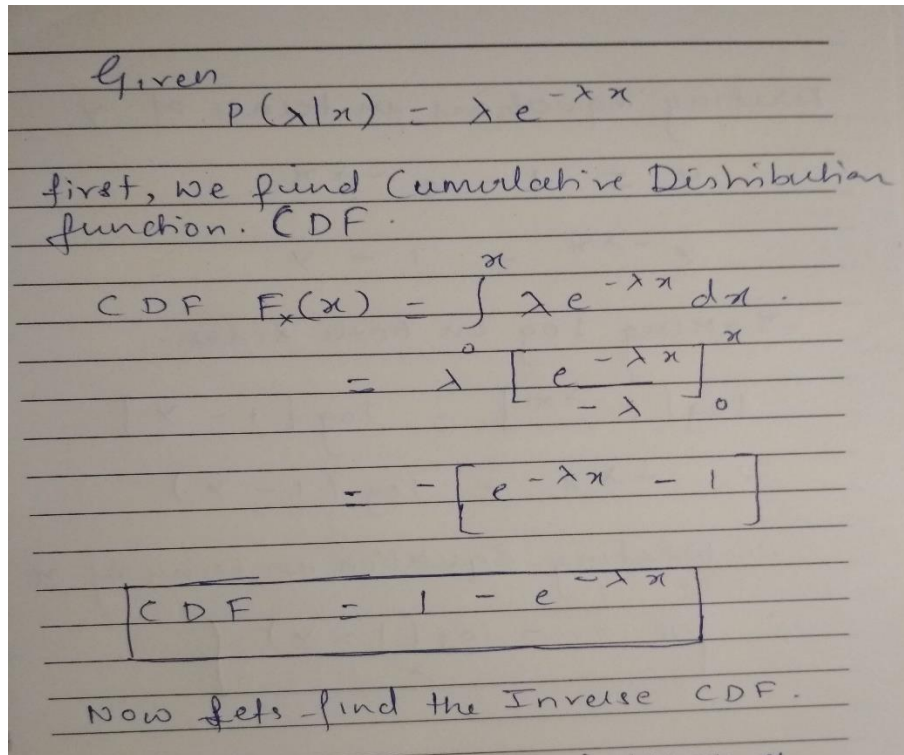 Given
P(λ|x) = λ e^{-λx}
first, we find Cumulative Distribution
function. CDF.
CDF F_x(x) = ∫_0^x λ e^{-λx} dx.
= λ [e^{-λx} / -λ]_0^x
= - [e^{-λx} - 1]
CDF = 1 - e^{-λx}
Now lets find the Inverse CDF.